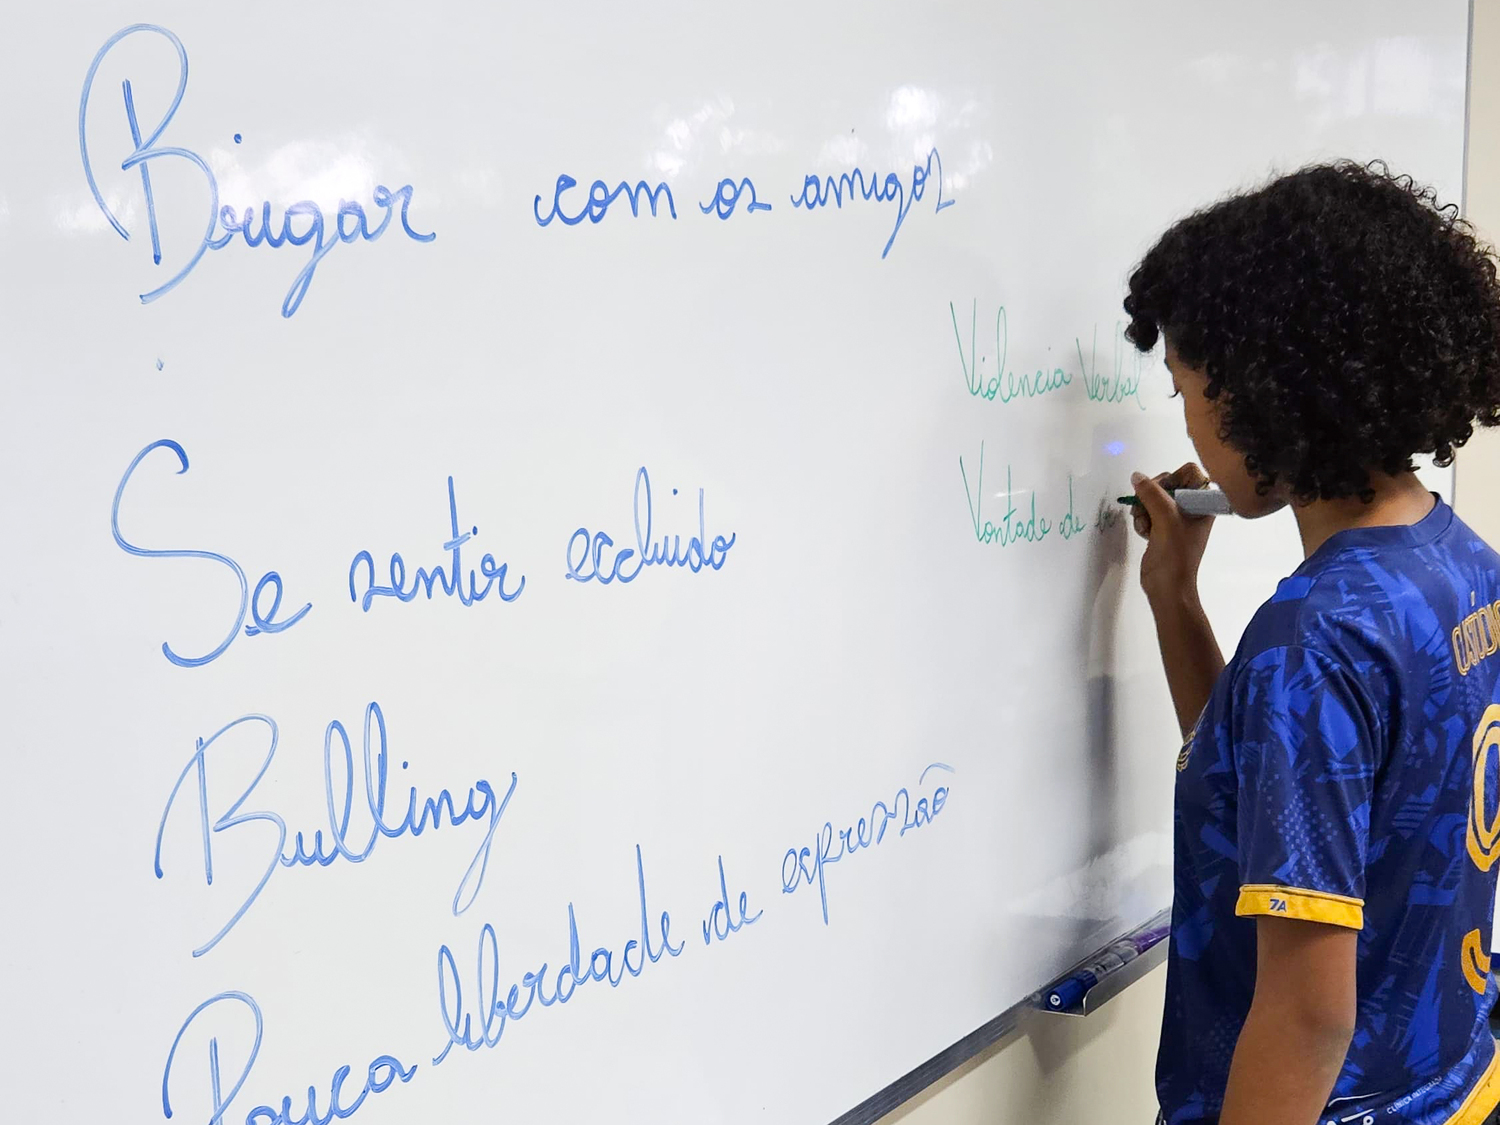 Brigar com os amigos
Se sentir excluido
Bulling
Pouca liberdade de expressão
Violencia Verbal
Vontade de
7A